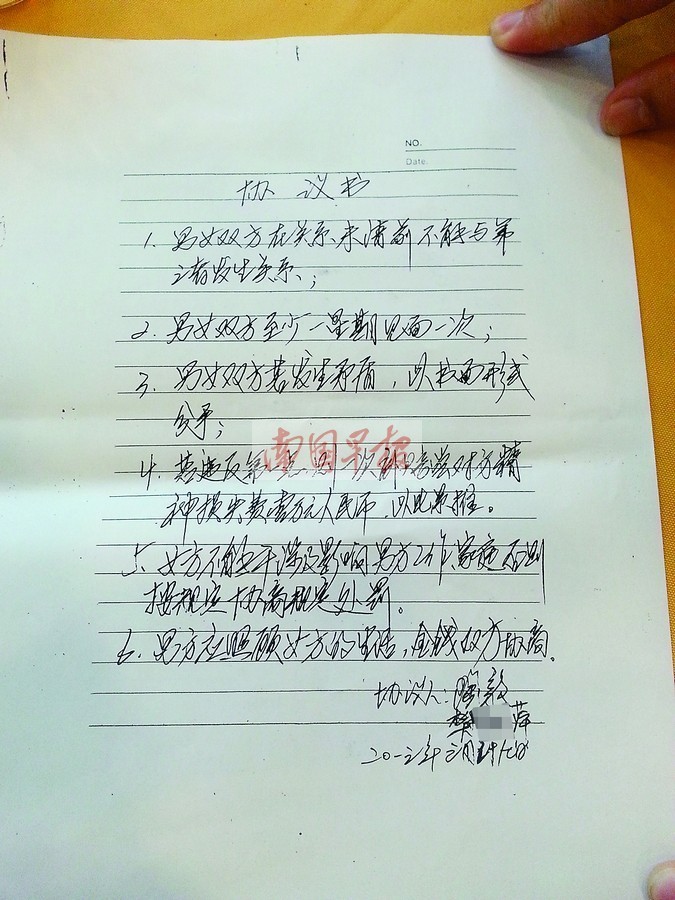 NO.
Date.
协议书
1. 男女双方在关系未清前不能与第
三者发生关系;
2. 男女双方至少一星期见面一次;
3. 男女双方若发生矛盾,以书面形式
分手;
南国早报
4. 若违反第一点,则一次赔偿对方精
神损失费壹万元人民币,以此类推。
5. 女方不能干涉及影响男方工作、家庭否则
按规定协商规定处罚。
6. 男方应照顾女方的生活,金钱双方协商。
协议人:
萍
二0一三年